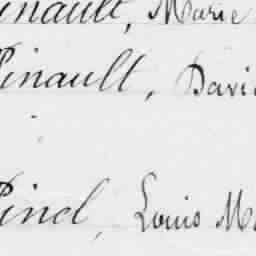 inault, Marie
Pinault, Davi
Pinel, Louis Ma